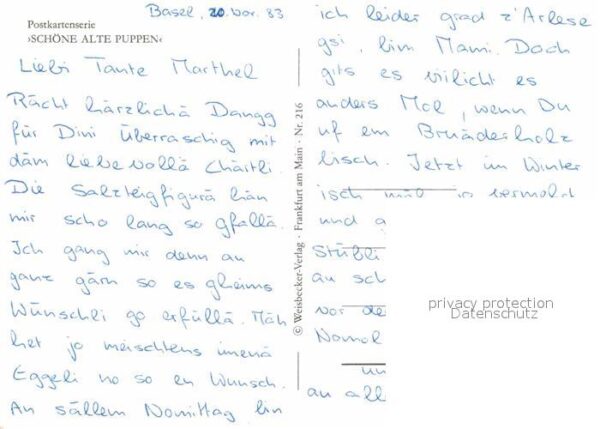 Basel, 20. Nov. 83
Postkartenserie
›SCHÖNE ALTE PUPPEN‹
Liebi Tante Marthel
Rächt härzlichä Dangg
für Dini Überraschig mit
däm liebevollä Chärtli.
Die Salzteigfigurä hän
mir scho lang so gfallä.
Ich gang mir denn au
ganz gärn so es gheims
Wünschli go erfüllä. Mäh
het jo meischtens imenä
Eggeli no so en Wunsch.
An sällem Nomittag bin
© Weisbecker-Verlag · Frankfurt am Main · Nr. 216
ich leider grad z'Arlese
gsi, bim Mami. Doch
gits es vilicht es
anders Mol, wenn Du
uf em Bruäderholz
bisch. Jetzt im Winter
isch
und
Stübli
au
vor
Nomol
an all
privacy protection
Datenschutz